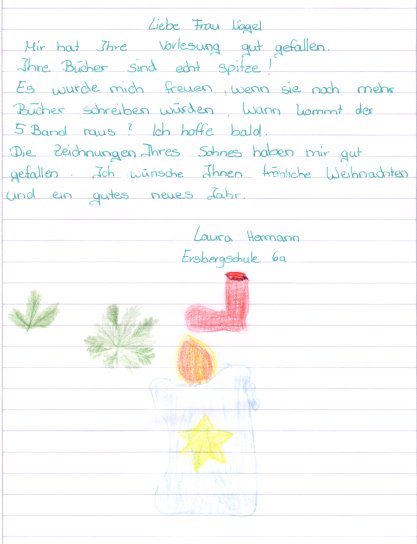 Liebe Frau Vogel
Mir hat Ihre Vorlesung gut gefallen.
Ihre Bücher sind echt spitze!
Es wurde mich freuen, wenn sie noch mehr
Bücher schreiben würden. Wann kommt der
5 Band raus? Ich hoffe bald.
Die Zeichnungen Ihres Sohnes haben mir gut
gefallen. Ich wünsche Ihnen fröhliche Weihnachten
und ein gutes neues Jahr.
Laura Hermann
Ersbergschule 6a